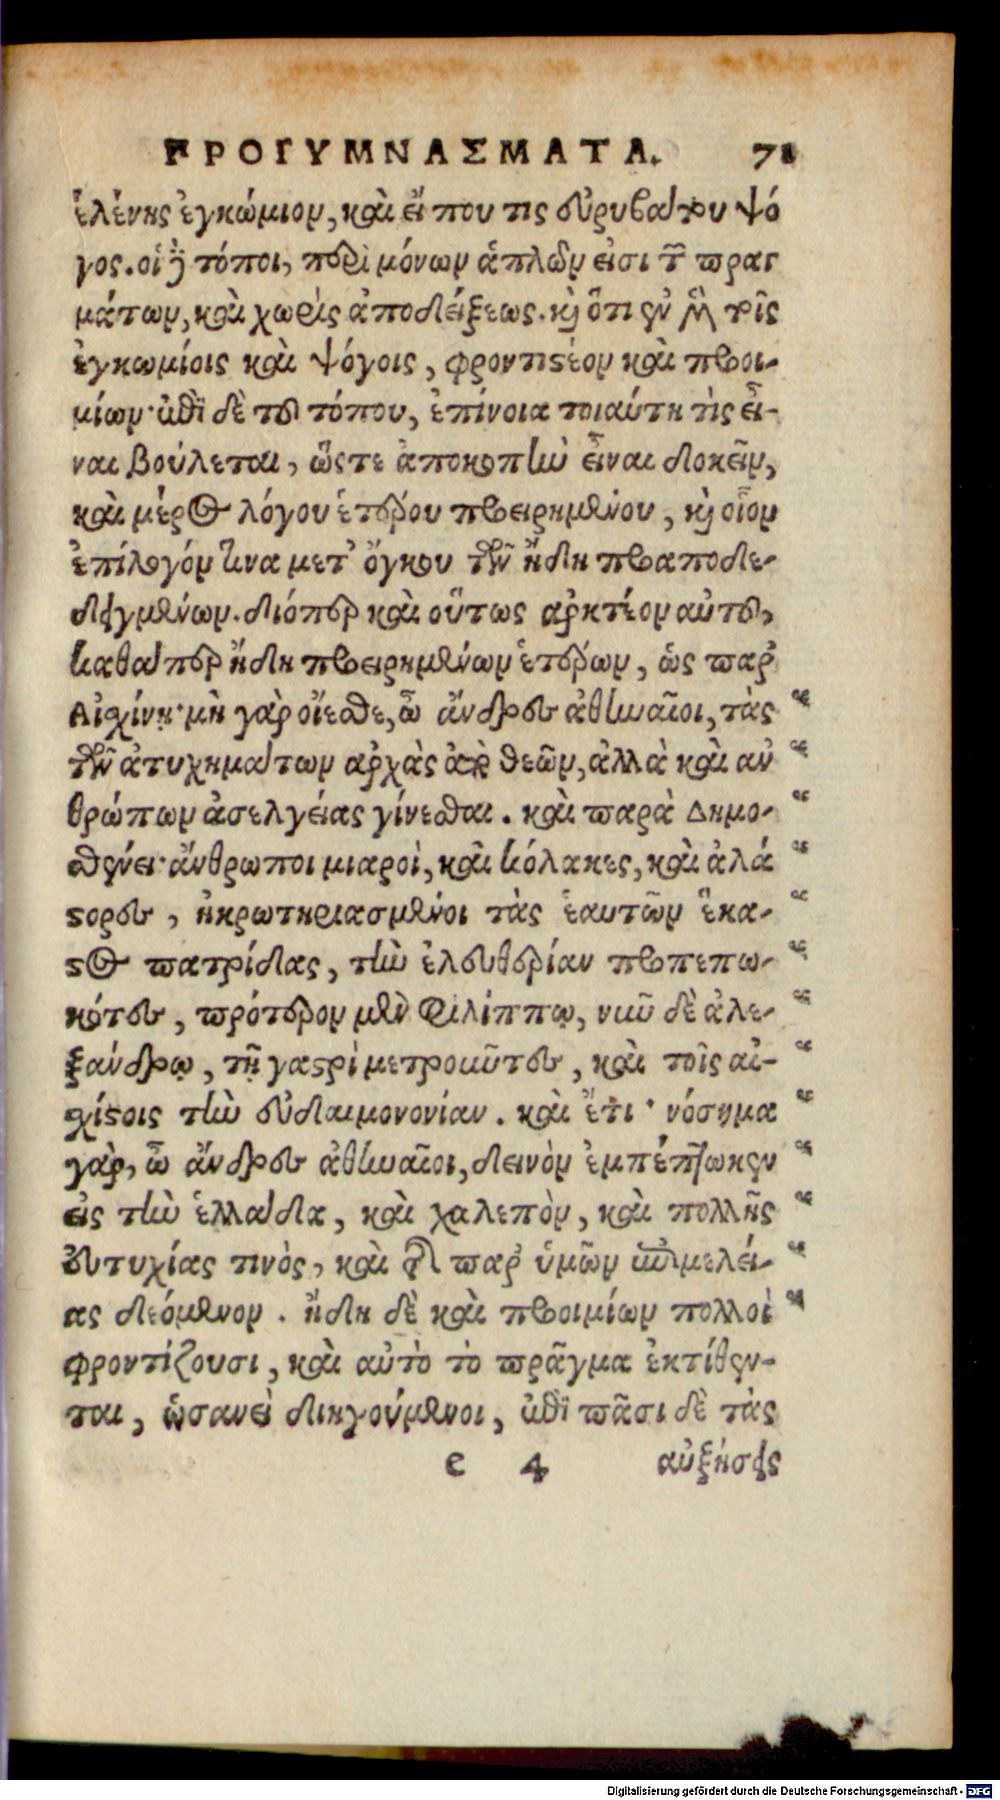 ΠΡΟΓΥΜΝΑΣΜΑΤΑ. 71
ἑλένης ἐγκώμιον, καὶ εἴ που τις εὐρυβάτου ψό
γος. οἱ δὲ τόποι, περὶ μόνων ἁπλῶν εἰσι τῶν πραγ
μάτων, καὶ χωρὶς ἀποδείξεως. καὶ ὅτι ἐν μὲν τοῖς
ἐγκωμίοις καὶ ψόγοις, φροντιστέον καὶ προοι-
μίων· ἐπὶ δὲ τοῦ τόπου, ἐπίνοια τοιαύτη τὶς εἶ-
ναι βούλεται, ὥστε ἀποκοπτὴν εἶναι δοκεῖν,
καὶ μέρος λόγου ἑτέρου προειρημένου, καὶ οἷον
ἐπίλογόν τινα μετ' ὄγκου τῶν ἤδη προαποδε-
δειγμένων. διόπερ καὶ οὕτως ἀρκτέον αὐτοῦ,
καθάπερ ἤδη προειρημένων ἑτέρων, ὡς παρ'
Αἰσχίνῃ· μὴ γὰρ οἴεσθε, ὦ ἄνδρες ἀθηναῖοι, τὰς
τῶν ἀτυχημάτων ἀρχὰς ἀπὸ θεῶν, ἀλλὰ καὶ ἀν
θρώπων ἀσελγείας γίνεσθαι. καὶ παρὰ Δημο-
σθένει· ἄνθρωποι μιαροὶ, καὶ κόλακες, καὶ ἀλά
στορες, ἠκρωτηριασμένοι τὰς ἑαυτῶν ἕκα-
στος πατρίδας, τὴν ἐλευθερίαν προπεπω-
κότες, πρότερον μὲν Φιλίππῳ, νῦν δὲ ἀλε-
ξάνδρῳ, τῇ γαστρὶ μετροῦντες, καὶ τοῖς αἰ-
σχίστοις τὴν εὐδαιμονονίαν. καὶ ἔτι· νόσημα
γὰρ, ὦ ἄνδρες ἀθηναῖοι, δεινὸν ἐμπέπτωκεν
εἰς τὴν ἑλλάδα, καὶ χαλεπὸν, καὶ πολλῆς
εὐτυχίας τινὸς, καὶ τῆς παρ' ὑμῶν ἐπιμελεί-
ας δεόμενον. ἤδη δὲ καὶ προοιμίων πολλοὶ
φροντίζουσι, καὶ αὐτὸ τὸ πρᾶγμα ἐκτίθεν-
ται, ὡσανεὶ διηγούμενοι, ἐπὶ πᾶσι δὲ τὰς
e 4 αὐξήσεις
Digitalisierung gefördert durch die Deutsche Forschungsgemeinschaft - DFG